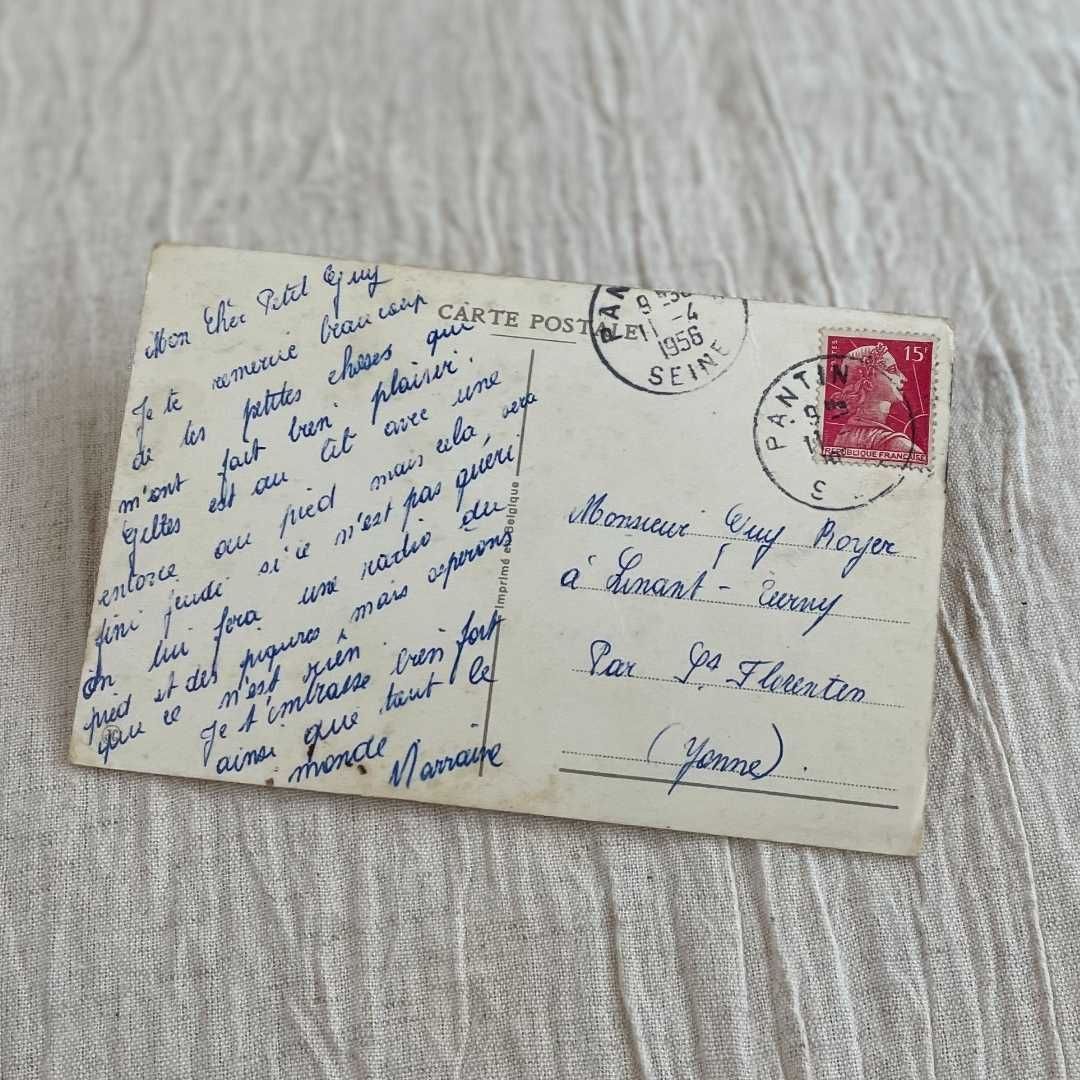 Mon Cher Petit Guy
Je te remercie beaucoup
de tes petites choses qui
m'ont fait bien plaisir.
Gilles est au lit avec une
entorse au pied mais cela sera
fini jeudi si ce n'est pas guéri
on lui fera une radio du
pied et des piqures mais espérons
que ce n'est rien
Je t'embrasse bien fort
ainsi que tout le
monde Marraine
CARTE POSTALE
Imprimé en Belgique
PANTIN
9
11-4
1956
SEINE
PANTIN
9
11
S
15F
REPUBLIQUE FRANCAISE
Monsieur Guy Royer
à Linant - Turny
Par St Florentin
(Yonne).